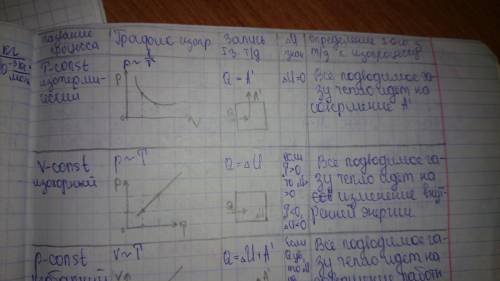 название процесса
График изопр.
Запись
Iз. т/д
ΔU
Определение I-ого з.
т/д к изопроцессу
T-const
изотерми-
ческий
p~1/V
P
V
Q = A'
A'
Q
ΔU=0
Все подводимое га-
зу тепло идет на
совершение A'
V-const
изохорный
p~T
P
Q = ΔU
Q
ΔU
если
Q>0,
то ΔU
>0
Q<0,
ΔU<0
Все подводимое га-
зу тепло идет на
изменение внут-
ренней энергии
p-const
V~T
V
Q = ΔU+A'
если
Все подводимое га-
зу тепло идет на